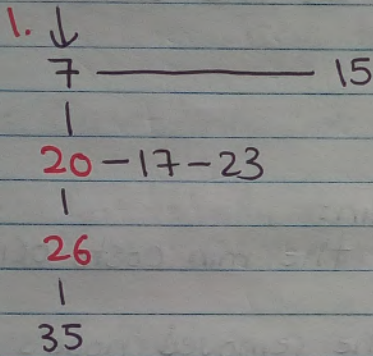 1. ↓
7 — 15
|
20 - 17 - 23
|
26
|
35